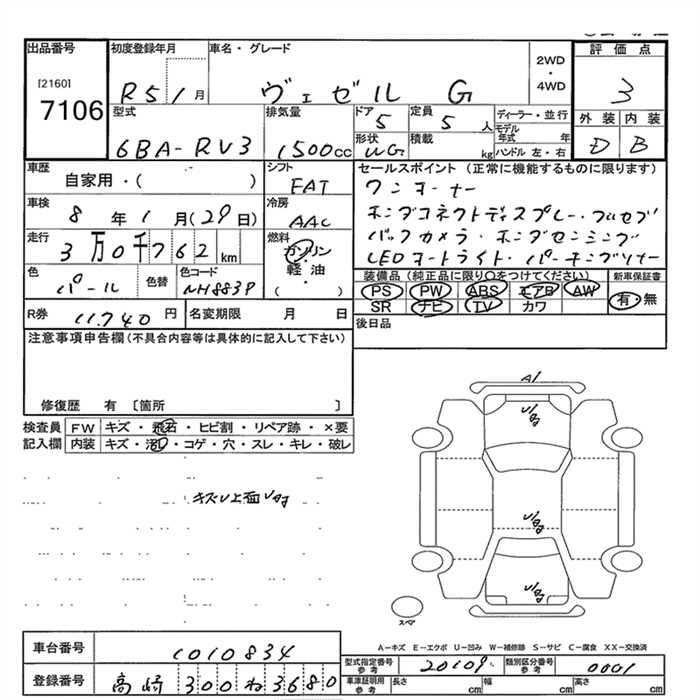 出品番号
[2160]
7106
初度登録年月
R5 1月
車名・グレード
ヴェゼル G
2WD
・
4WD
評価点
3
外装 内装
D B
型式
6BA-RV3
排気量
1500cc
ドア
5
定員
5人
形状
WG
積載
kg
ディーラー・並行
モデル年式 年
ハンドル 左・右
車歴
自家用・( )
シフト
FAT
セールスポイント (正常に機能するものに限ります)
ワンオーナー
ホンダコネクトディスプレー・フルセグ
バックカメラ・ホンダセンシング
LEDオートライト・パーキングソナー
車検
8年1月(29日)
冷房
AAC
走行
3万0千762km
燃料
ガソリン
軽油・
( )
色
パール
色替
色コード
NH883P
装備品 (純正品に限り○をつけてください)
PS PW ABS エアB AW
SR ナビ TV カワ
新車保証書
有・無
R券
11,740円
名変期限 月 日
後日品
注意事項申告欄(不具合内容等は具体的に記入して下さい)
修復歴 有 [箇所 ]
検査員記入欄
FW キズ・飛石・ヒビ割・リペア跡・×要
内装 キズ・汚・コゲ・穴・スレ・キレ・破レ
A1
スペア
A-キズ E-エクボ U-凹み W-補修跡 S-サビ C-腐食 XX-交換済
車台番号
1010834
登録番号
高崎 300 ね 3680
型式指定番号
参考
20109
類別区分番号
参考
0001
車庫証明用
参考
長さ cm 幅 cm 高さ cm